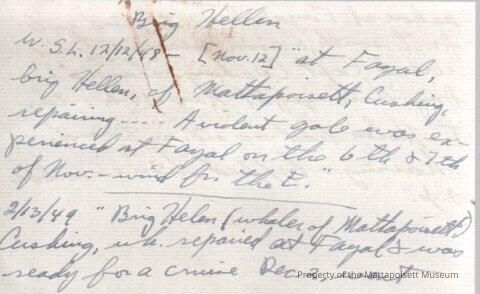 Brig Hellen
W.S.L. 12/12/48 - [Nov. 12] "at Fayal,
brig Hellen, of Mattapoisett, Cushing,
repairing ..... A violent gale was ex-
perienced at Fayal on the 6th & 7th
of Nov. - wind fr. the E."
2/13/49 "Brig Helen (whaler of Mattapoisett)
Cushing, wh. repaired at Fayal & was
ready for a cruise Dec 2, went
Property of the Mattapoisett Museum